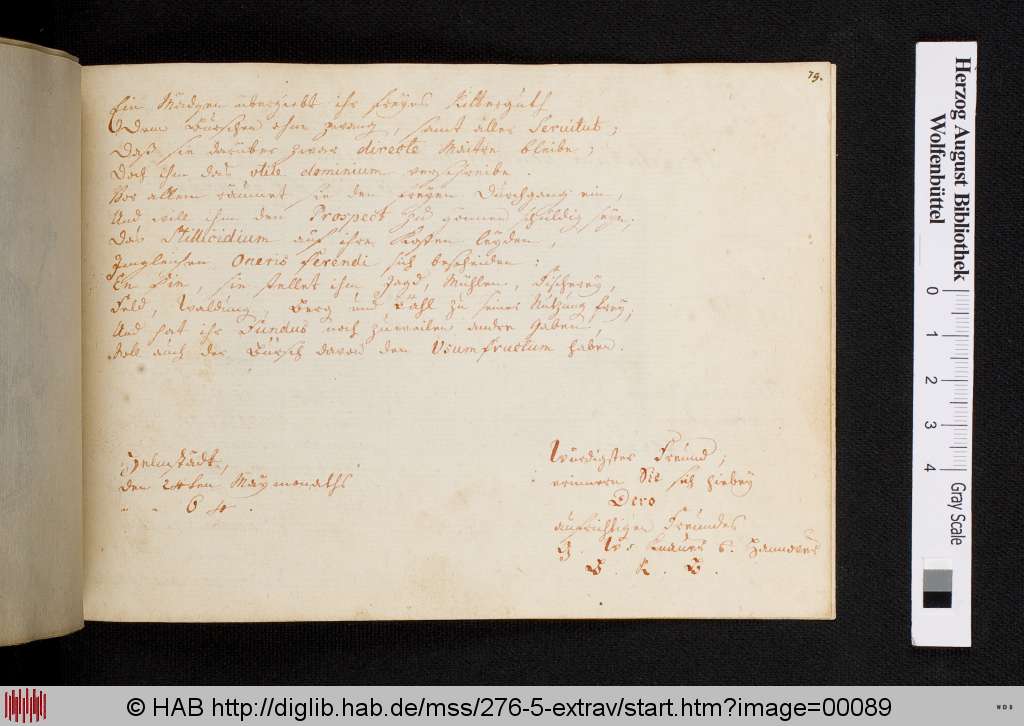 79.
Ein Mädgen übergiebt ihr freyes Ritterguth
Dem Burschen ohne zwang, samt aller Servitut;
Daß sie darüber zwar directe Maitre bleibe;
Doch ihm das utile dominium verschreibe.
Vor allem räumet sie den freyen Durchgang ein,
Und will ihm den Prospect zu gönnen schuldig seyn,
Das Stillicidium auf ihre Kosten leyden,
Imgleichen Oneris ferendi sich bescheiden:
sie stellet ihm Jagd, Mühlen, Fischerey,
Feld, Waldung, Berg und Thal zu seiner Nutzung frey;
Und hat ihr Fundus noch zuweilen andre Gaben,
Soll auch der Bursch davon den Usumfructum haben.
Helmstädt,
den 24ten Maymonaths
64.
Würdigster Freund,
erinnern Sie sich hiebey
Dero
aufrichtigen Freundes
Hannover
Herzog August Bibliothek
Wolfenbüttel
0 1 2 3 4
Gray Scale
© HAB http://diglib.hab.de/mss/276-5-extrav/start.htm?image=00089
WDB